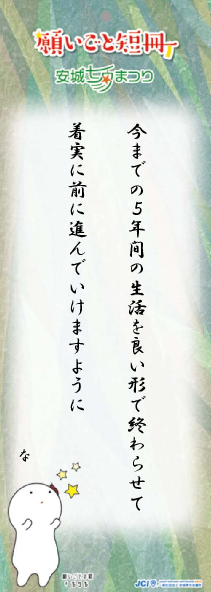 願いごと短冊
安城七夕まつり
今までの5年間の生活を良い形で終わらせて
着実に前に進んでいけますように
な
JCI